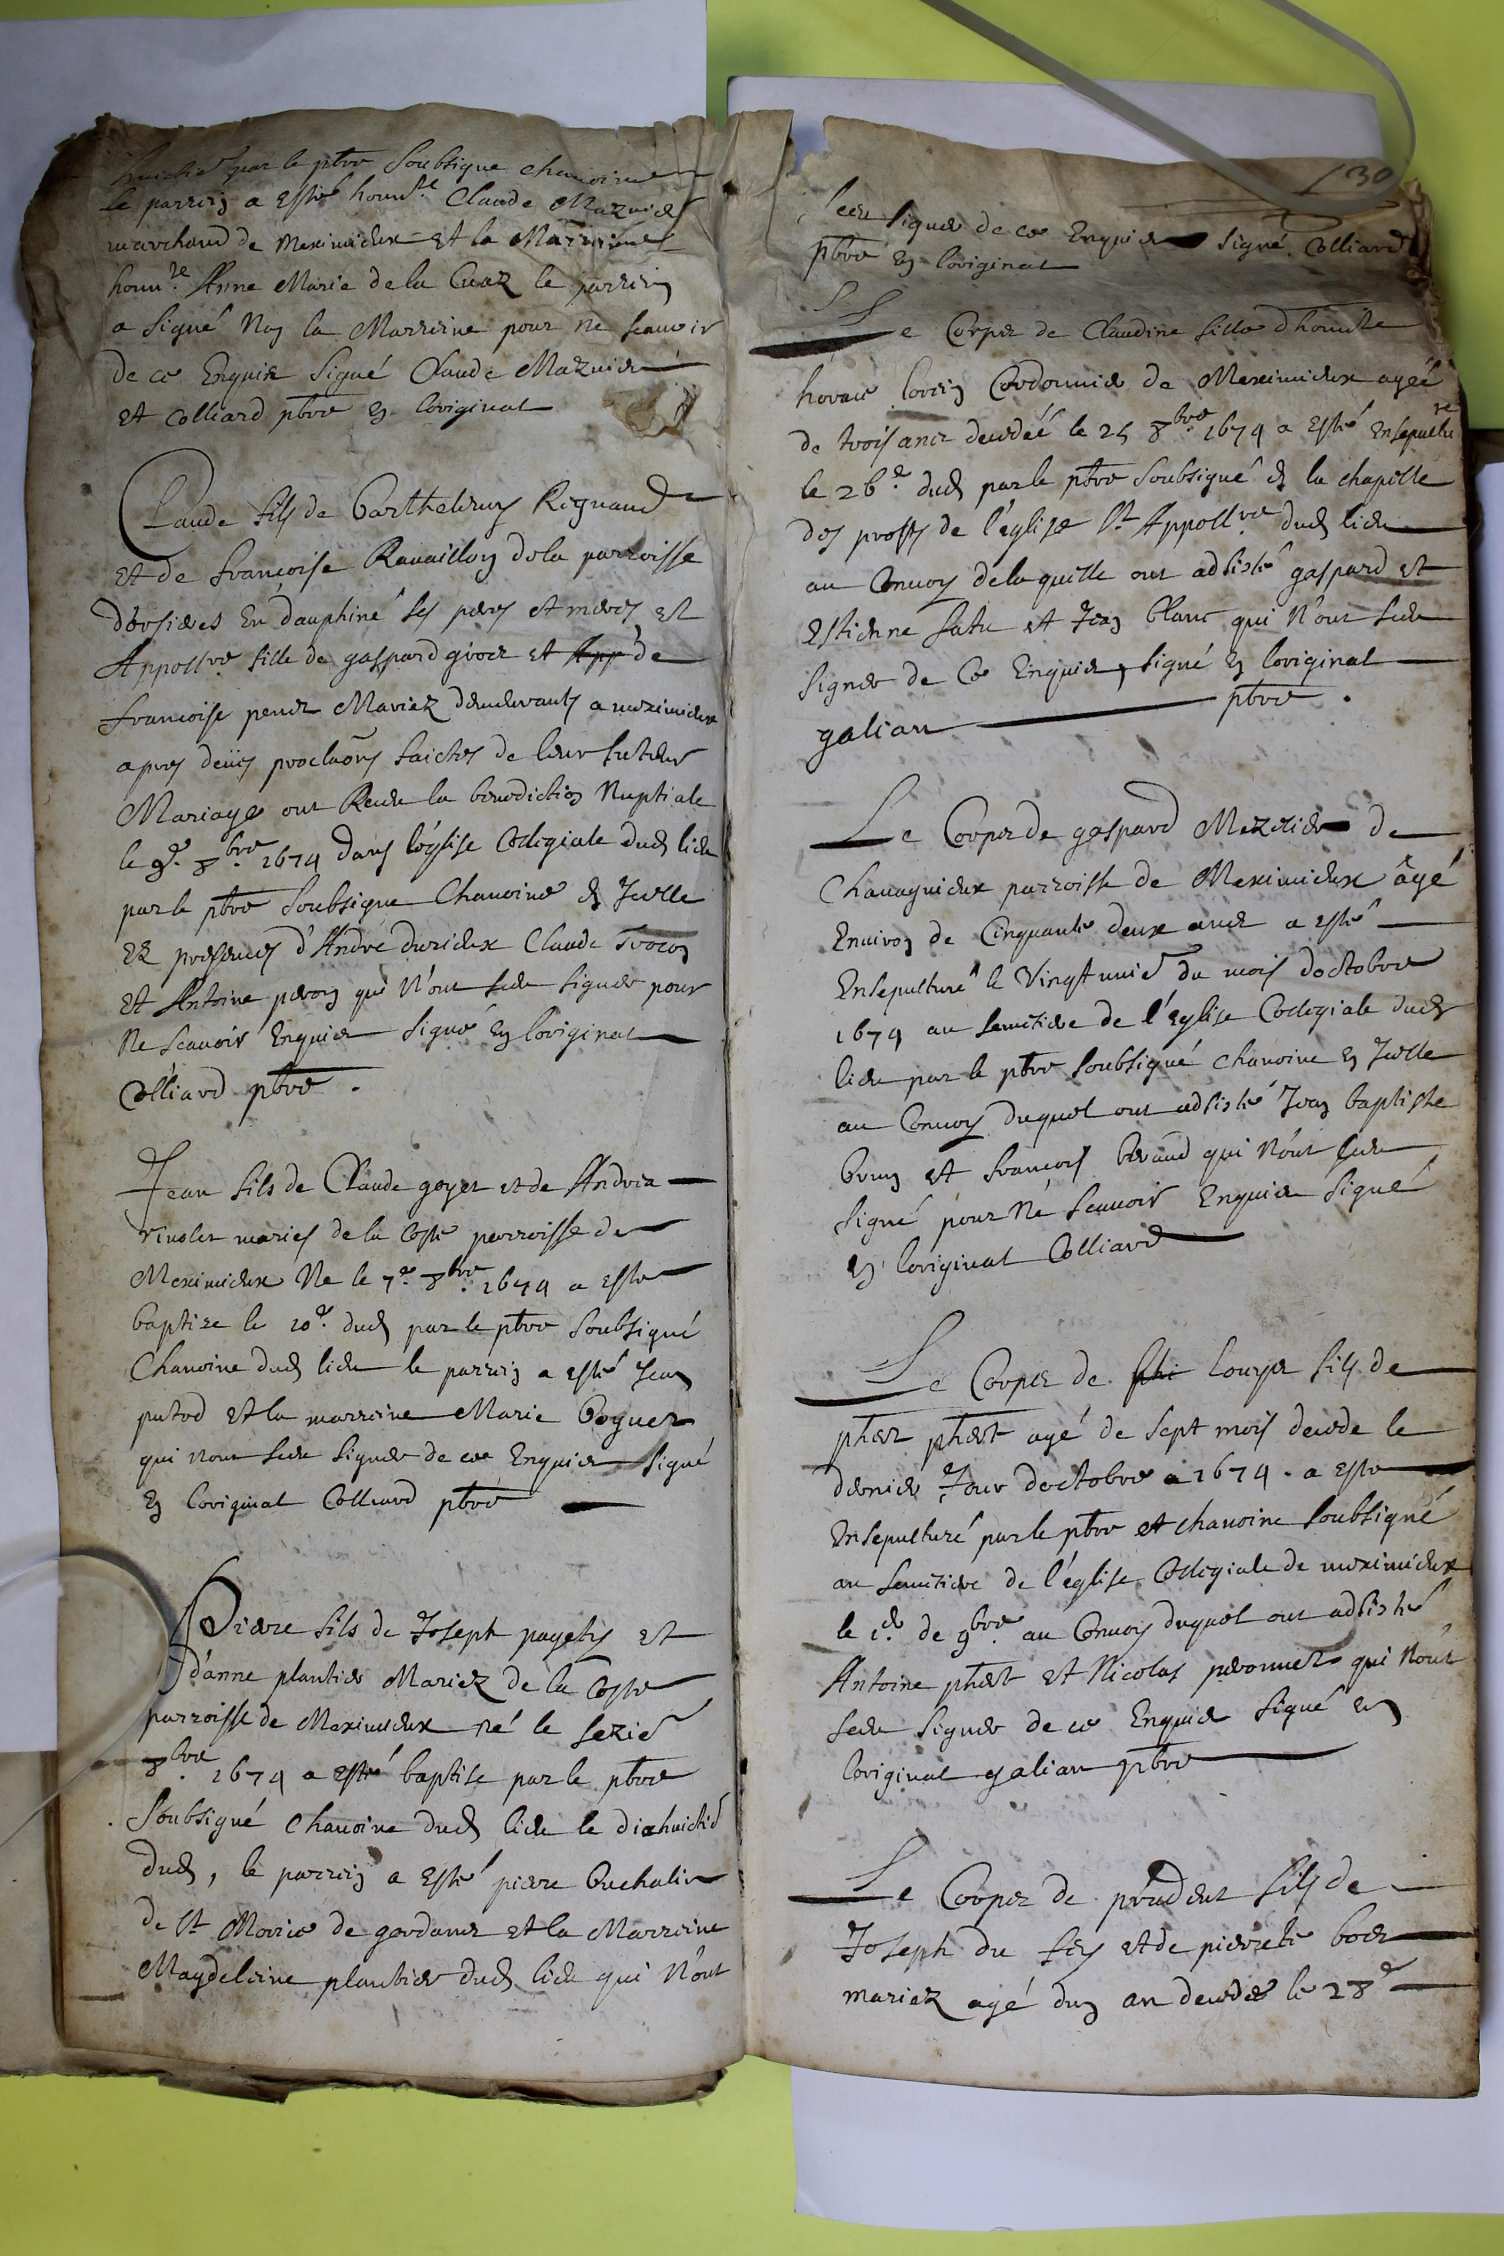 par le pbre soubsigne chanoine
le parrin a esté honn.le Claude Mazuier
marchand de Meximieux et la Marrine
honn.le Anne Marie de la Cuaz le parrin
a signé Non la Marrine pour ne scauoir
de ce Enquis signé Claude Mazuier
et Colliard pbre en loriginal
Claude fils de Barthelemy Rignaud
et de francoise Rauaillon dela parroisse
En dauphiné ses peres et meres et
Appoll.re fille de gaspard giroz et App de
francoise penez Mariez demeurants a meximieux
apres deux proclaons faictes de leur futeur
Mariage ont Receu la benediction Nuptiale
le 9.e 8.bre 1674 dans leglise Collegiale dud lieu
par le pbre soubsigne Chanoine en Icelle
Ez presences d'André durieux Claude
et Antoine peron qui n'ont sceu signer pour
ne scauoir Enquis signé en loriginal
Colliard pbre.
Jean fils de Claude goyet et de Andrea
riuolet mariés de la Coste parroisse de
Meximieux Ne le 7.e 8.bre 1674 a esté
baptize le 10.e dud par le pbre soubsigné
Chanoine dud lieu le parrin a esté Jean
putod et la marrine Marie Boguet
qui nont sceu signer de ce Enquis signé
en loriginal Colliard pbre
Pierre fils de Joseph pagetz et
d'anne plantier Mariez de la Coste
parroisse de Meximieux né le sezie
8.bre 1674 a esté baptise par le pbre
soubsigné Chanoine dud lieu le dixhuictie
dud, le parrin a esté pierre Cuchalin
de St Moris de gordanes et la Marrine
Magdeleine plantier dud lieu qui n'ont
130
sceu signer de ce Enquis signé Colliard
pbre en loriginal
Le Corps de Claudine fille dhonnble
horace lorin Cordonnier de Meximieux agée
de trois ans decedée le 25 8.bre 1674 a esté Ensepultu
re
le 26.e dud par le pbre soubsigné en la chapelle
des de l'église St Appoll.re dud lieu
au Conuoy de laquelle ont adsisté gaspard et
Estienne et Jean blanc qui n'ont sceu
signer de Ce Enquis, signé en loriginal
galian pbre.
Le Corps de gaspard Mezelier de
Chauagnieux parroisse de Meximieux âgé
Enuiron de Cinquante deux ans a esté
Ensepulturé le Vingtunie du mois doctobre
1674 au semetiere de l'Eglise Collegiale dud
lieu par le pbre soubsigné chanoine en Icelle
au Conuoy duquel ont adsisté Jean baptiste
brun et francois beraud qui n'ont sceu
signé pour ne scauoir Enquis signé
en loriginal Colliard
Le Corps de louys fils de
agé de sept mois decede le
dernier Jour doctobre a 1674. a esté
Ensepulturé par le pbre et chanoine soubsigné
au semetiere de l'église Collegiale de meximieux
le 1.er de 9.bre au Conuoy duquel ont adsisté
Antoine et Nicolas peronnet qui nont
sceu signer de ce Enquis signé en
loriginal galian pbre
Le Corps de prudent fils de
Joseph du et de pierrete boez
mariez agé dun an decedé le 28.e